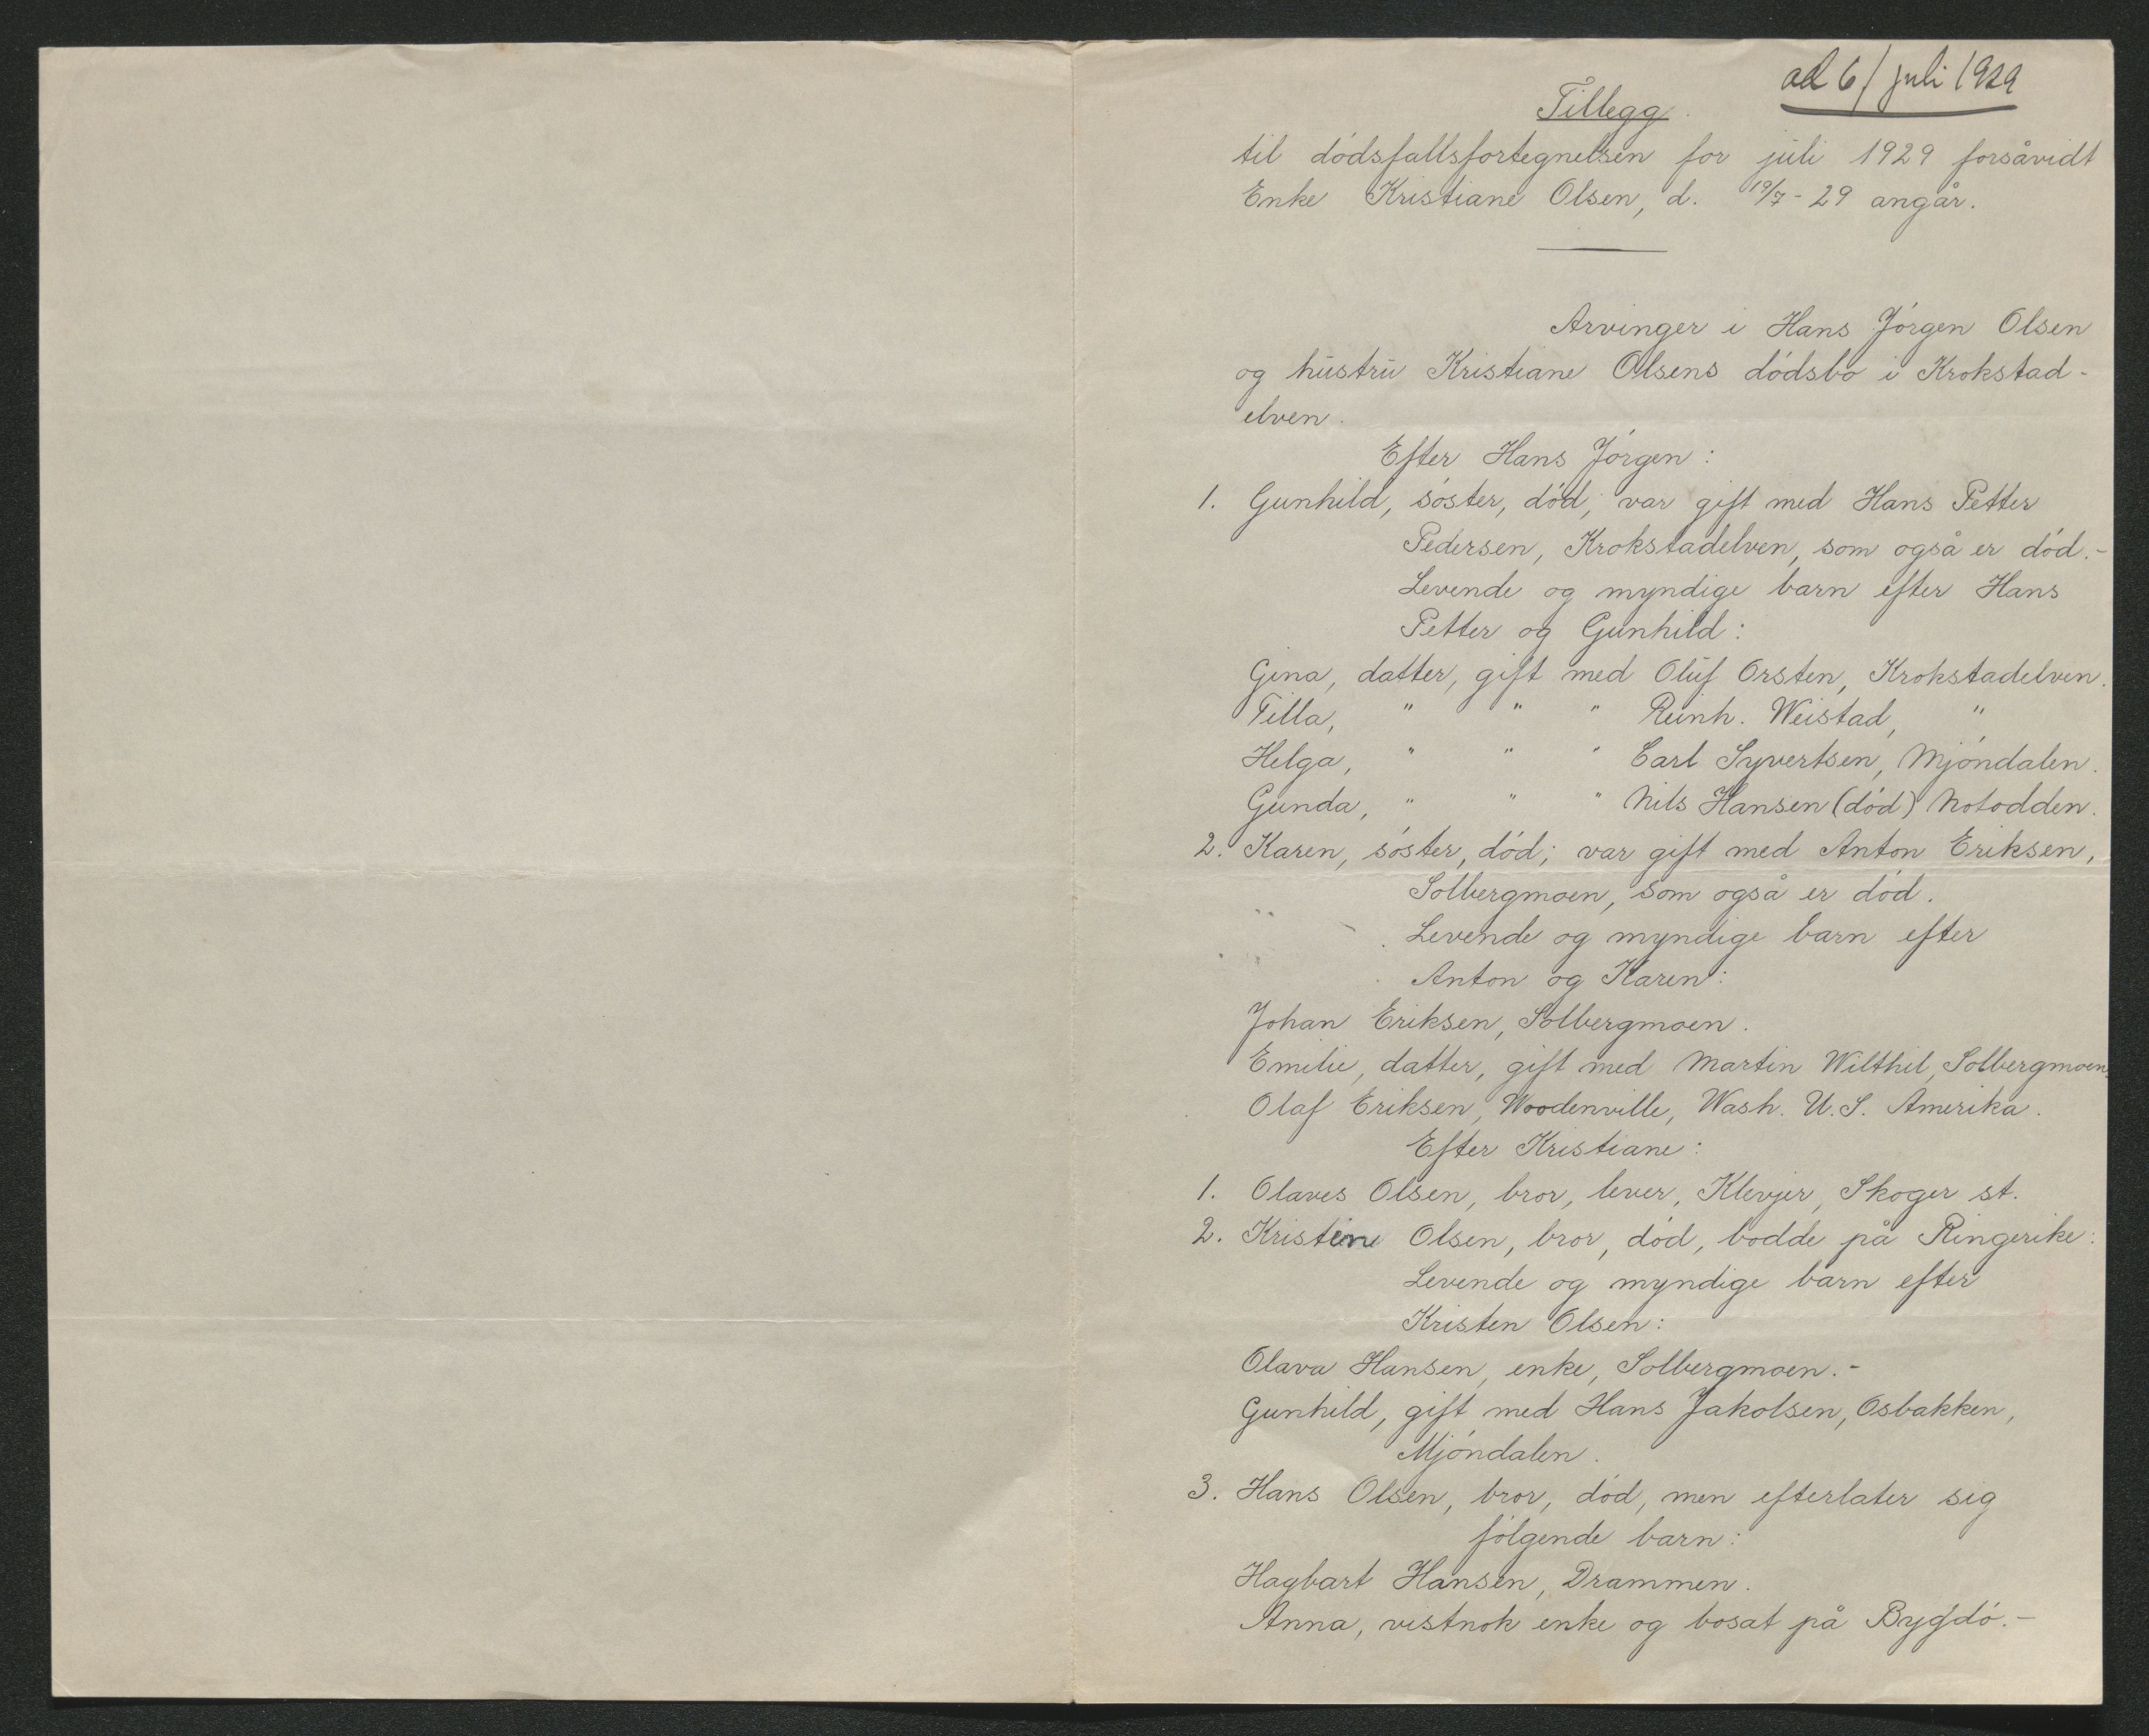 ad 6/ juli 1929
Tillegg.
til dödsfallsfortegnelsen for juli 1929 forsåvidt
Enke Kristiane Olsen, d. 19/7-29 angår.
Arvinger i Hans Jörgen Olsen
og hustru Kristiane Olsens dödsbo i Krokstad-
elven.
Efter Hans Jörgen:
1. Gunhild, söster, död; var gift med Hans Petter
Pedersen, Krokstadelven, som også er död.-
Levende og myndige barn efter Hans
Petter og Gunhild:
Gina, datter, gift med Oluf Orsten, Krokstadelven.
Tilla, " " " Reinh. Weistad, "
Helga, " " " Carl Syvertsen, Mjöndalen.
Gunda, " " " Nils Hansen (död) Notodden.
2. Karen, söster, död; var gift med Anton Eriksen,
Solbergmoen, som også er död.
Levende og myndige barn efter
Anton og Karen:
Johan Eriksen, Solbergmoen.
Emilie, datter, gift med Martin Wilthil, Solbergmoen.
Olaf Eriksen, Woodenville, Wash. U.S. Amerika.
Efter Kristiane:
1. Olaves Olsen, bror, lever, Klevjer, Skoger st.
2. Kristen Olsen, bror, död, bodde på Ringerike:
Levende og myndige barn efter
Kristen Olsen:
Olava Hansen, enke, Solbergmoen.-
Gunhild, gift med Hans Jakolsen, Osbakken,
Mjöndalen.
3. Hans Olsen, bror, död, men efterlater sig
fölgende barn:
Hagbart Hansen, Drammen.
Anna, vistnok enke og bosat på Bygdö.-